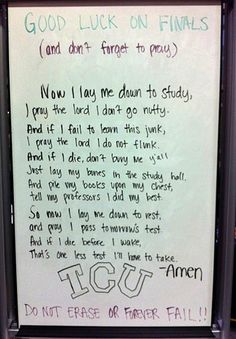 GOOD LUCK ON FINALS
(and don't forget to pray)
Now I lay me down to study,
I pray the lord I don't go nutty.
And if I fail to learn this junk,
I pray the Lord I do not flunk.
And if I die, don't bury me y'all
Just lay my bones in the study hall.
And pile my books upon my chest,
tell my professors I did my best.
So now I lay me down to rest,
and pray I pass tomorrow's test.
And if I die before I wake,
That's one less test I'll have to take.
-Amen
TCU
DO NOT ERASE OR FOREVER FAIL!!